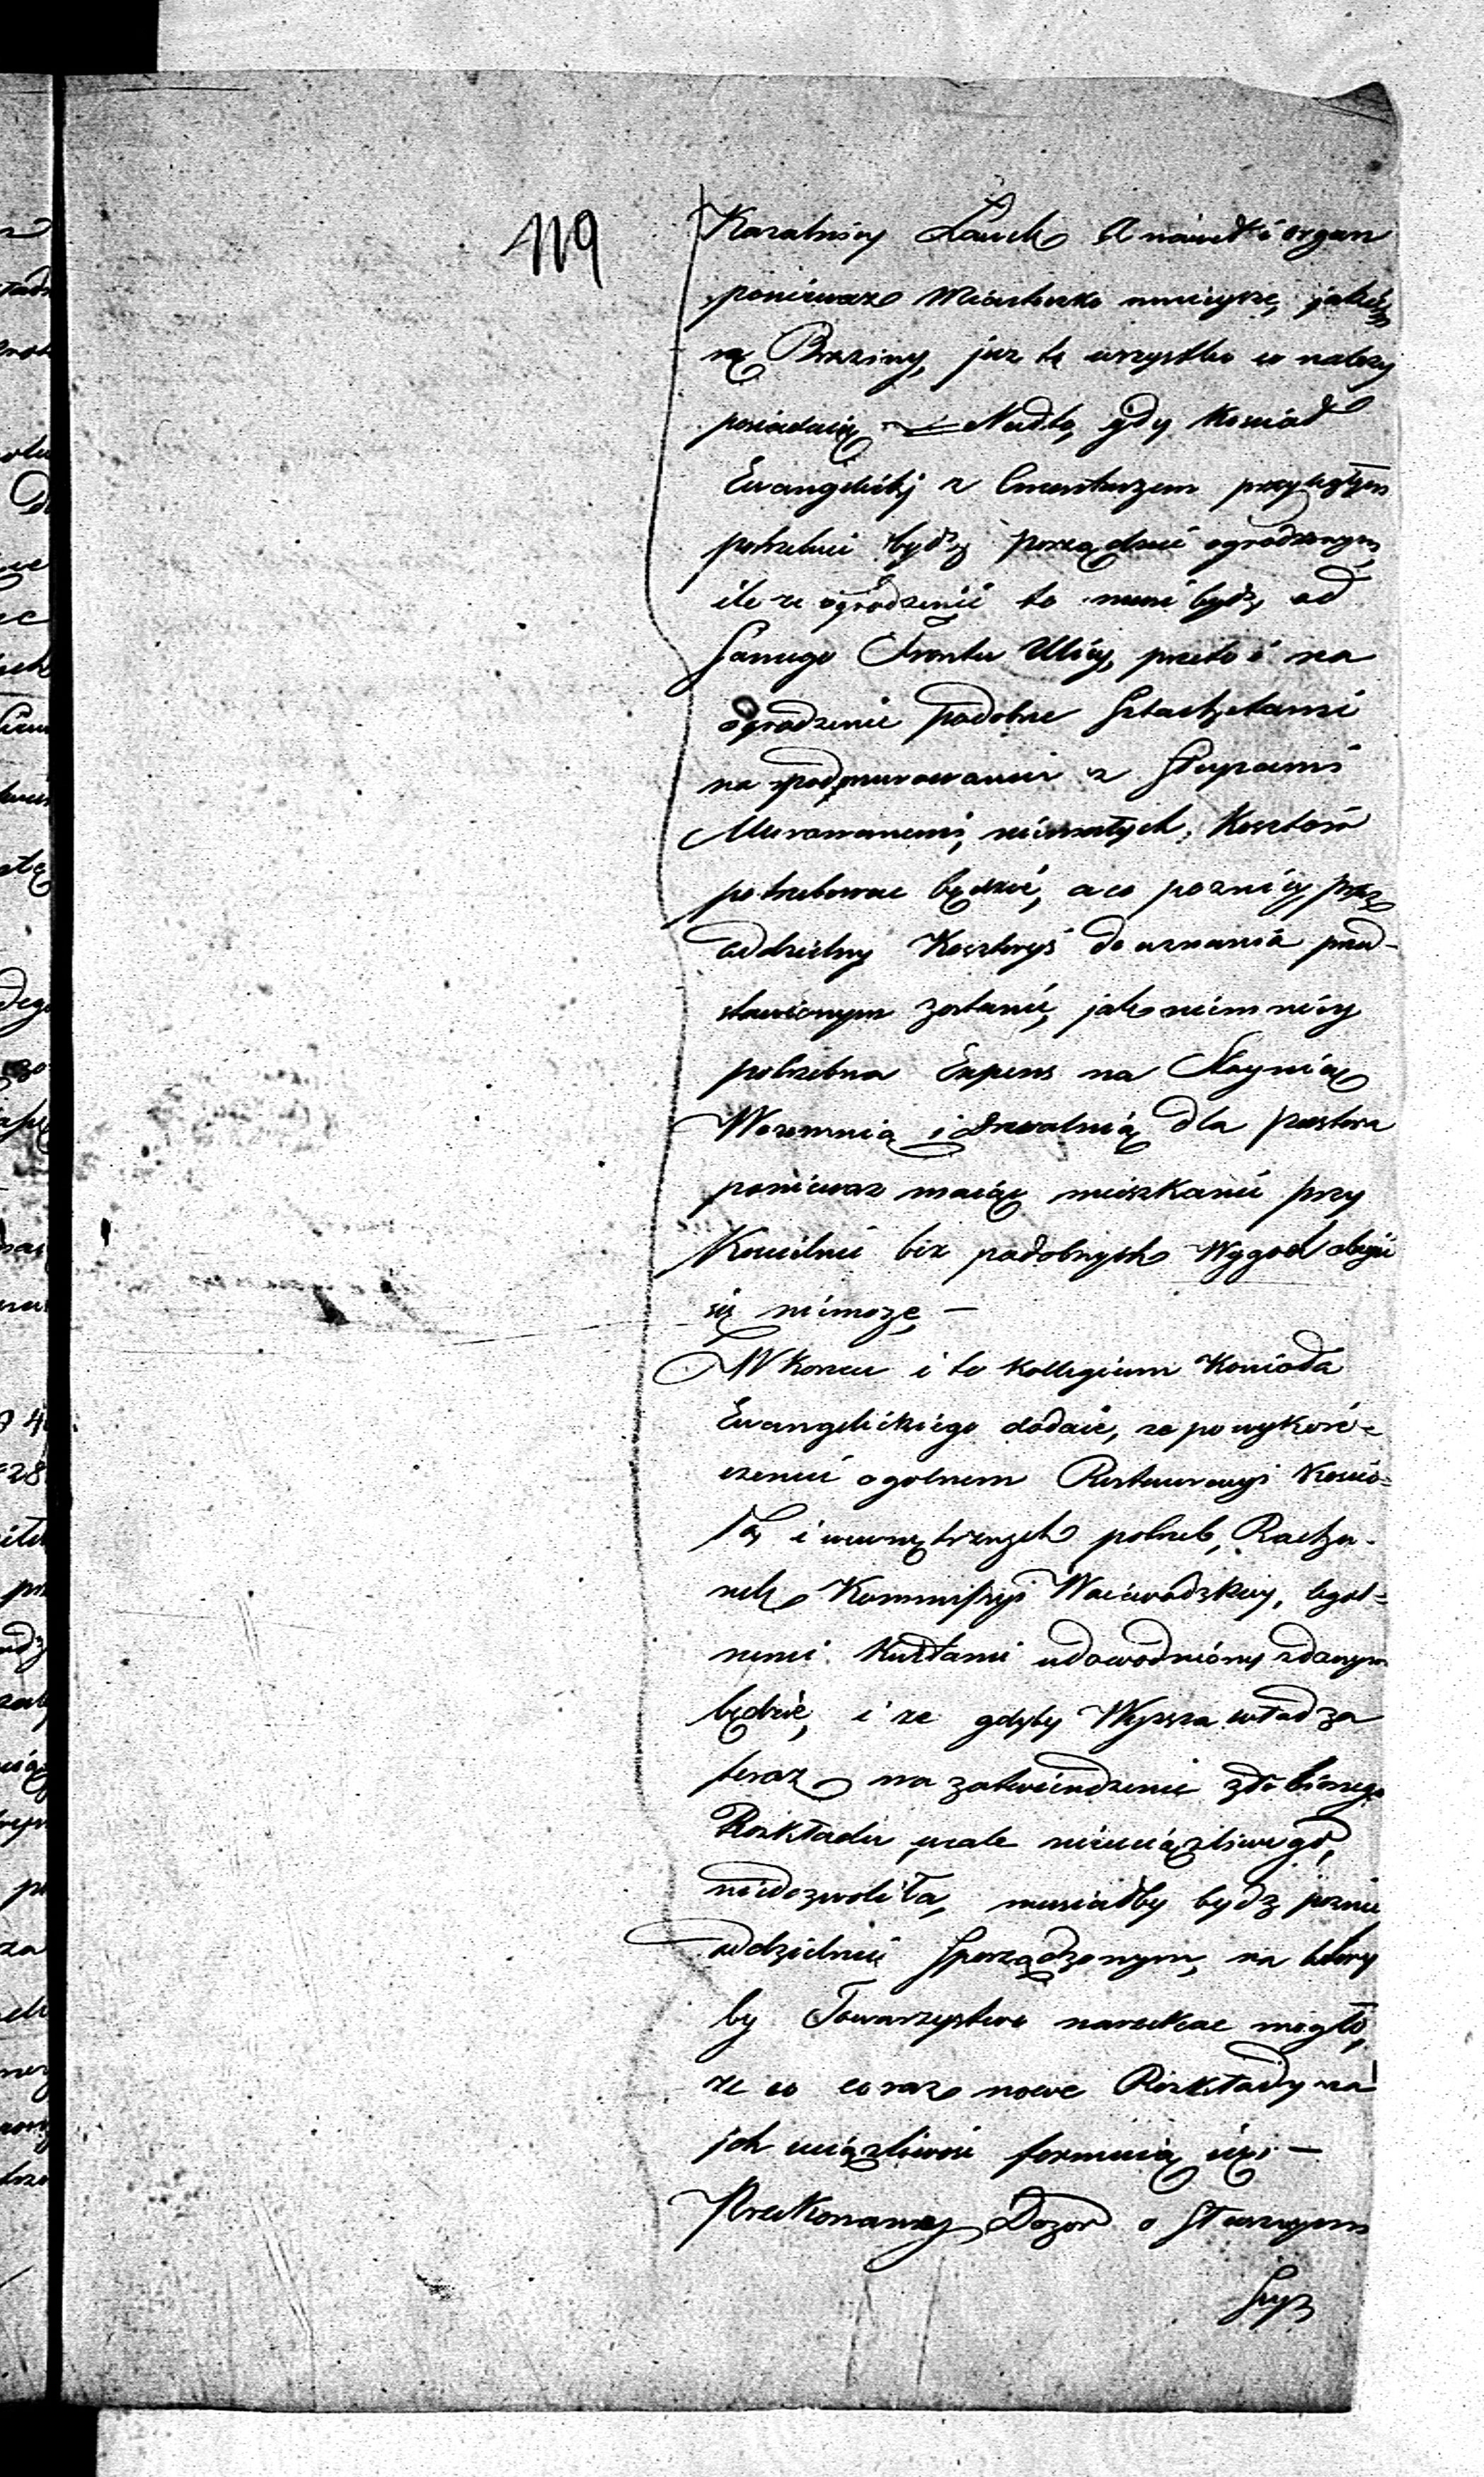 119
Kazalnicy Ławek A nawet i organ
ponieważ Miasteczko mnieysze, jakiem
są Brzeziny, juz te wszystko co nalezy
posiadaią — Nadto, gdy Koscioł
Ewangelickj z Cmentarzem przyległym
potrzebuie bydź porządnie ogrodzonym,
ile ze ogrodzenie to musi bydź od
samego Frontu Ulicy, przeto i na
ogrodzenie podobne Sztachetami
na podmurowaniu z Słupami
Murowanemi, niemałych Kosztow
potrzebowac będzie, a co pozniey przez
oddzielny Kosztorys do uznania przed-
stawionym zostanie, jako niemniey
potrzebna Expens na Staynią
Wozownią i drwalnią dla pastora
poniewaz maiąc mieszkanie przy
Kosciele bez podobnych Wygod obeyść
się niemoże —
W koncu i to Kollegium Kościoła
Ewangelickiego dodaie, ze po wykoń-
czeniu ogolnem Restauracyi Koscio-
ła i wewnętrznych potrzeb, Rachu-
nek Kommissyi Woiewodzkiey, legal-
nemi Kwitami udowodniony zdanym
będzie, i ze gdyby Wyzsza władza
teraz na zatwierdzenie zrobionego
Rozkładu, wcale nieuciązliwego,
niedozwoliła, musiałby bydź poznie
oddzielnie sporządzonym, na ktory
by Towarzystwo narzekac mogło,
ze co coraz nowe Rozkłady na
jch uciązliwość formuią się. —
Przekonany Dozor o słusznym